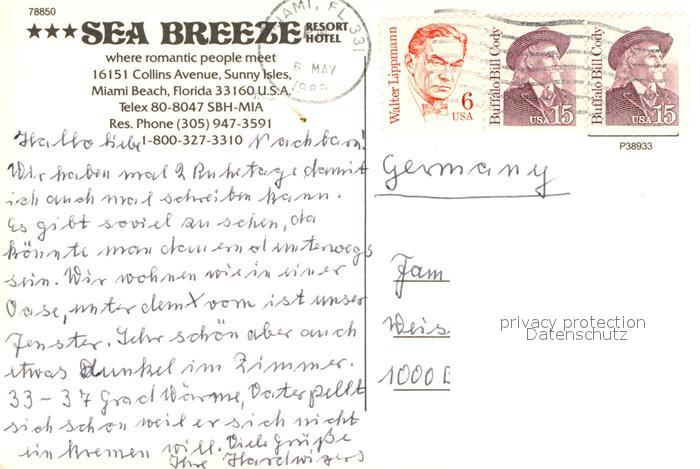 78850
★★★ SEA BREEZE RESORT HOTEL
where romantic people meet
16151 Collins Avenue, Sunny Isles,
Miami Beach, Florida 33160 U.S.A.
Telex 80-8047 SBH-MIA
Res. Phone (305) 947-3591
1-800-327-3310
MIAMI, FL 331
6 MAY
Walter Lippmann
6
USA
Buffalo Bill Cody
USA 15
Buffalo Bill Cody
USA 15
P38933
Hallo liebe Nachbarn!
Wir haben mal 2 Ruhetage damit
ich auch mal schreiben kann.
Es gibt soviel zu sehen, da
könnte man dauernd unterwegs
sein. Wir wohnen wie in einer
Oase, unter dem X vorn ist unser
Fenster. Sehr schön aber auch
etwas dunkel im Zimmer.
33-37 Grad Wärme, Vater pellt
sich schon weil er sich nicht
einkremen will. Viele Grüße
Ihre
Germany
Fam
Weis
1000 B
privacy protection
Datenschutz